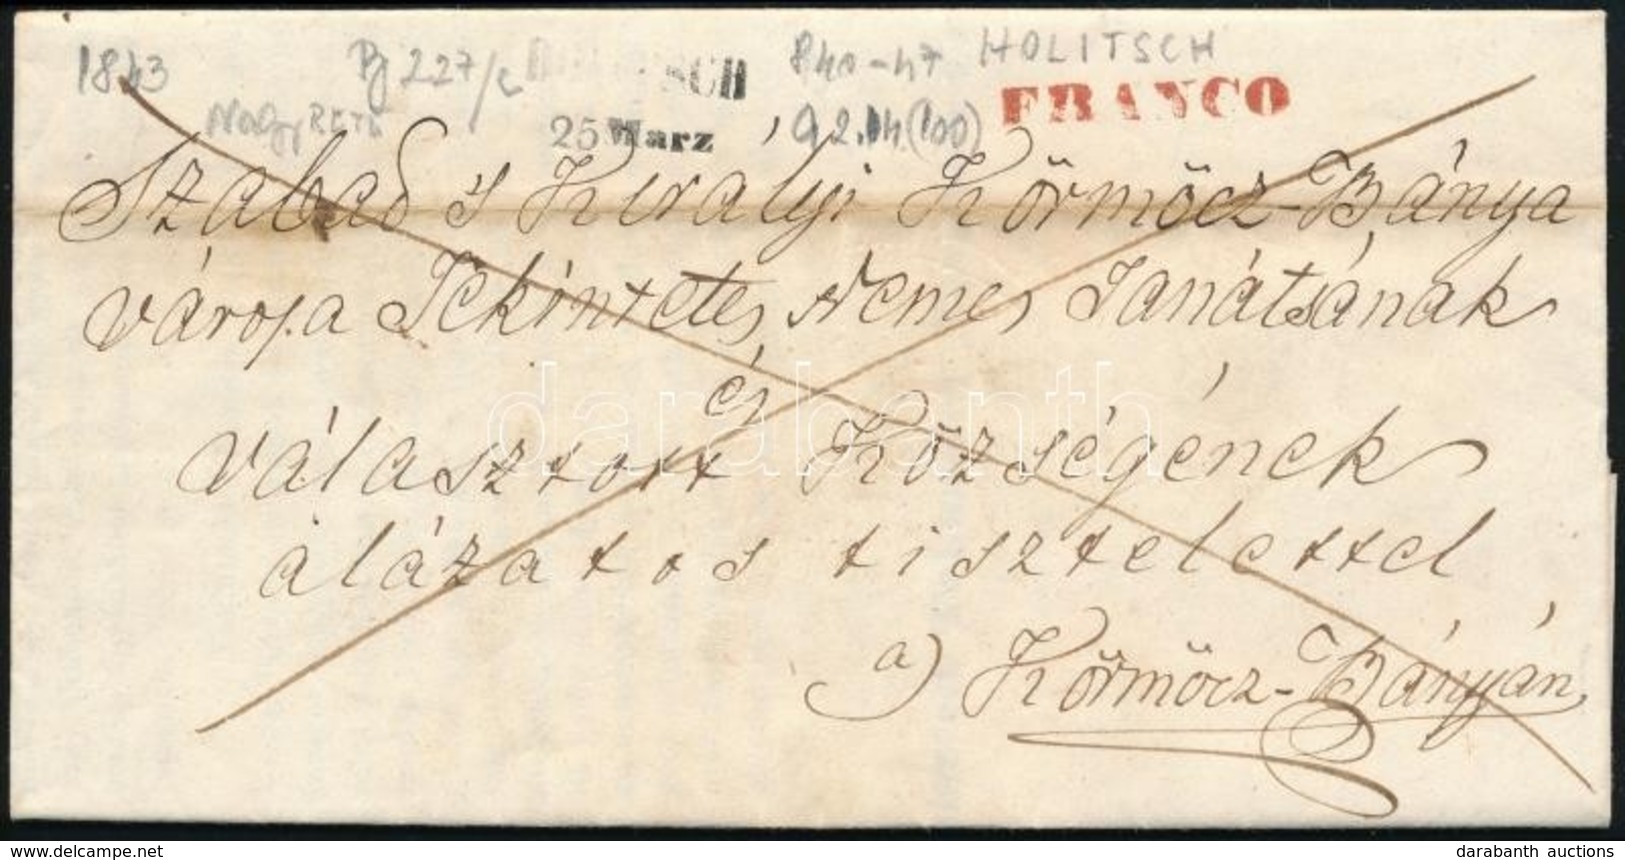 1843 Pj 227/c 840-47 HOLITSCH
FRANCO
25 Marz
Szabad s Királyi Körmöcz-Bánya
várossa Tekintetes Nemes Tanátsának
és
választott Községének
alázatos tisztelettel
a) Körmöcz-Bányán
darabanth
delcampe.net
darabanth auctions